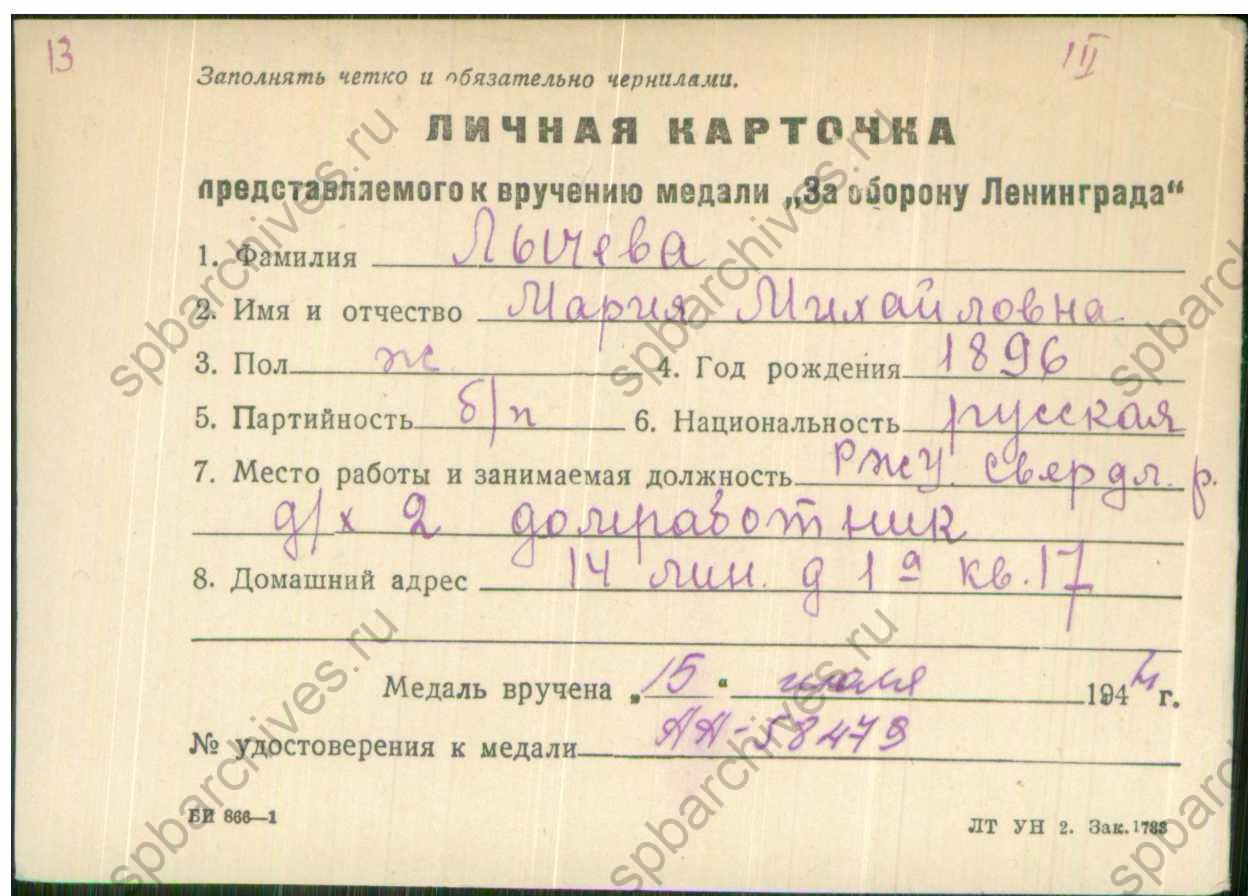 13
III
Заполнять четко и обязательно чернилами.
ЛИЧНАЯ КАРТОЧКА
представляемого к вручению медали „За оборону Ленинграда“
1. Фамилия Лычева
2. Имя и отчество Мария Михайловна
3. Пол ж. 4. Год рождения 1896
5. Партийность б/п 6. Национальность русская
7. Место работы и занимаемая должность РЖУ. Свердл. р.
д/х 2 домработник
8. Домашний адрес 14 лин. д 1а кв. 17
Медаль вручена „15“ июля 1944 г.
№ удостоверения к медали АА-58479
БИ 866—1
ЛТ УН 2. Зак. 1788
spbarchives.ru